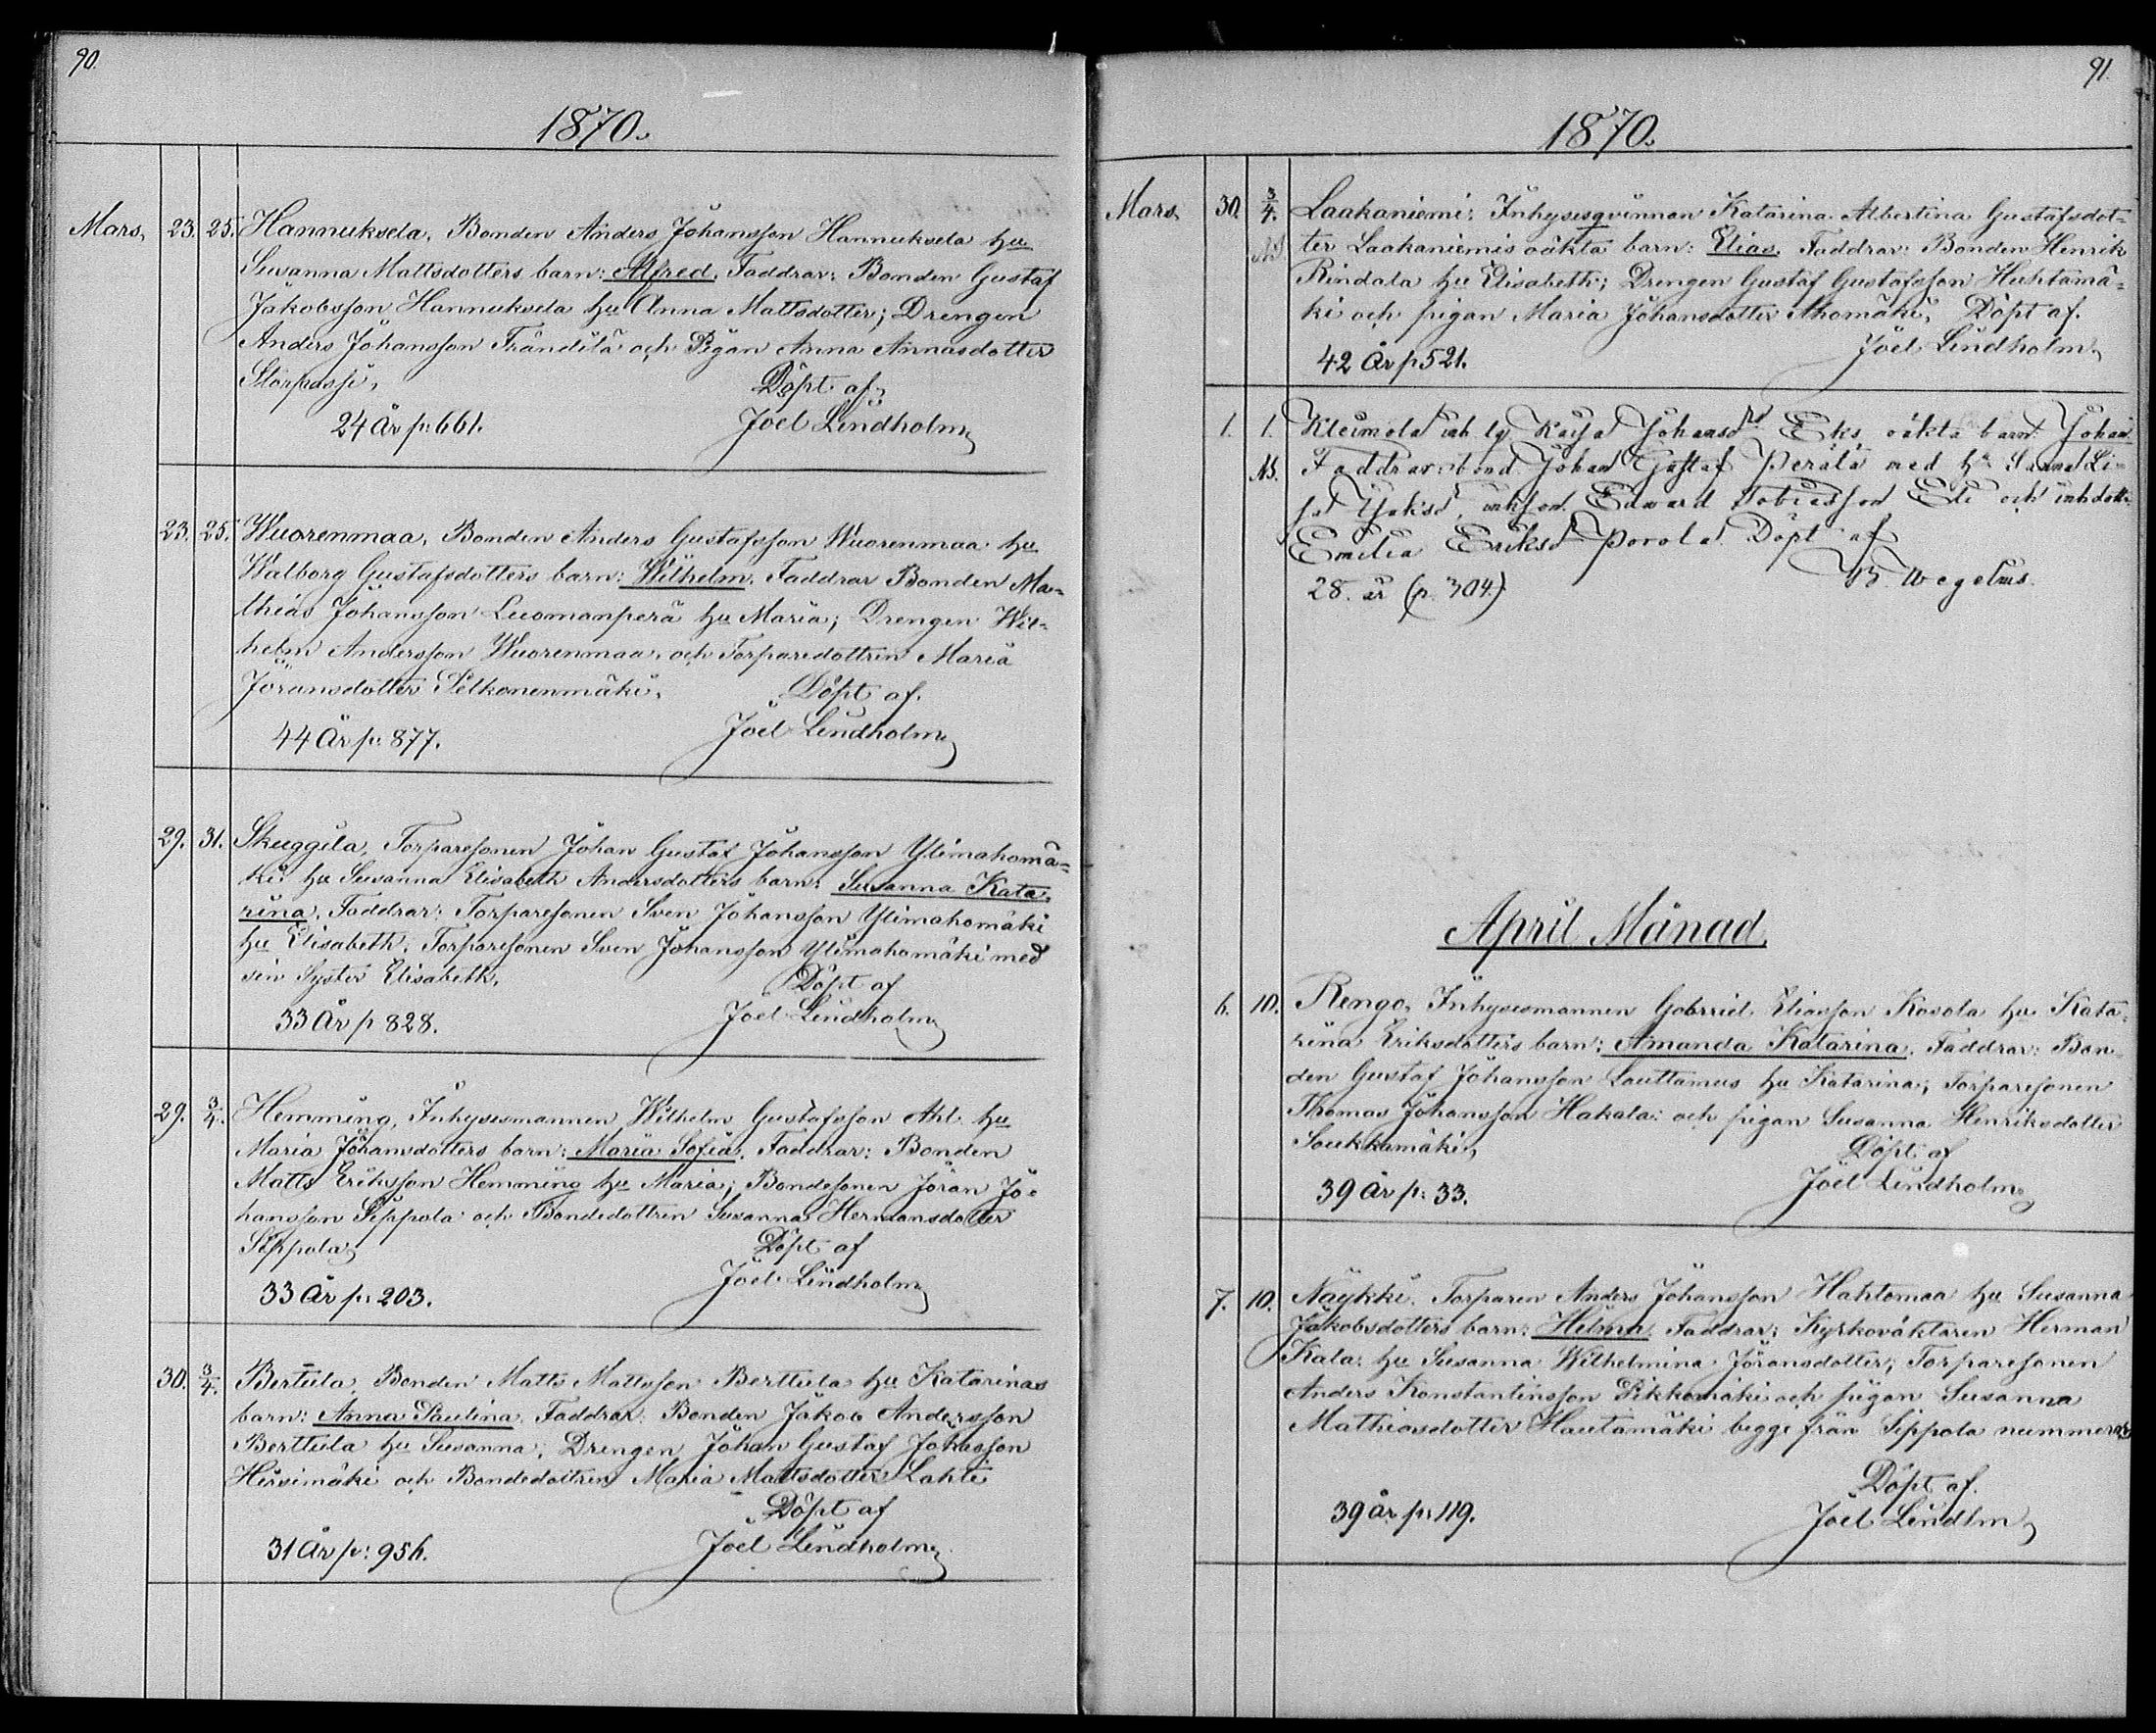 90.
1870.
Mars, 23. 25. Hannuksela, Bonden Anders Johansson Hannuksela hu
Susanna Mattsdotters barn: Alfred. Faddrar: Bonden Gustaf
Jakobsson Hannuksela hu Anna Mattsdotter; Drengen
Anders Johansson Frändilä och Pigan Anna Annasdotter
Storpassi,
Döpt af
24 År p: 661.
Joel Lindholm
23. 25. Wuorenmaa, Bonden Anders Gustafsson Wuorenmaa hu
Walborg Gustafsdotters barn: Wilhelm. Faddrar Bonden Ma-
thias Johansson Luomanperä hu Maria; Drengen Wil-
helm Andersson Wuorenmaa, och Torparedottren Maria
Jöransdotter Pelkonenmäki,
Döpt af.
44 År p: 877.
Joel Lindholm
29. 31. Skuggila, Torparesonen Johan Gustaf Johansson Ylimahomä-
ki hu Susanna Elisabeth Andersdotters barn: Susanna Kata-
rina. Faddrar: Torparesonen Sven Johansson Ylimahomäki
hu Elisabeth, Torparesonen Sven Johansson Ylimahomäki med
sin Syster Elisabeth,
Döpt af
33 År p 828.
Joel Lindholm
29. 3/4. Hemming, Inhysesmannen Wilhelm Gustafsson Ahl hu
Maria Johansdotters barn: Maria Sofia. Faddrar: Bonden
Matts Eriksson Hemming hu Maria; Bondesonen Jöran Jo-
hansson Sippola och Bondedottren Susanna Hermansdotter
Sippola,
Döpt af
33 År p: 203.
Joel Lindholm
30. 3/4. Bertula, Bonden Matts Mattsson Berttula hu Katarinas
barn: Anna Paulina. Faddrar: Bonden Jakob Andersson
Berttula hu Susanna; Drengen Johan Gustaf Johasson
Hirsimäki och Bondedottren Maria Mattsdotter Lahti
Döpt af
31 År p: 956.
Joel Lindholm
91.
1870.
Mars, 30. 3/4. Laakaniemi, Inhysesqvinnan Katarina Albertina Gustafsdot-
ter Laakaniemis oäkta barn: Elias. Faddrar: Bonden Henrik
Rindala hu Elisabeth; Drengen Gustaf Gustafsson Huhtamä-
ki och pigan Maria Johansdotter Ahomäki, Döpt af.
42 År p 521.
Joel Lindholm
1. 1. Kleimola inh. Kaisa Johansd Eks oäkta barn: Johan
Faddrar: bond. Johan Gustaf Perälä med hu Sanna Li-
sa Jaksd, inhson Edward Tobiasson och inhdott.
Emilia Eriksd Porola. Döpt af
28. år (p. 304).
Wegelius.
April Månad,
6. 10. Rengo, Inhysesmannen Gabriel Eliasson Kosola hu Kata-
rina Eriksdotters barn: Amanda Katarina. Faddrar: Bon-
den Gustaf Johansson Lauttamus hu Katarina; Torparesonen
Thomas Johansson Hakala: och pigan Susanna Henriksdotter
Soukkamäki,
Döpt af
39 År p: 33.
Joel Lindholm
7. 10. Näykki, Torparen Anders Johansson Hahtomaa hu Susanna
Jakobsdotters barn: Hilma. Faddrar: Kyrkoväktaren Herman
Kala: hu Susanna Wilhelmina Jöransdotter; Torparesonen
Anders Konstantinsson Pikkamäki och pigan Susanna
Mathiasdotter Hautamäki begge från Sippola nummer
Döpt af.
39 år p: 119.
Joel Lindlm